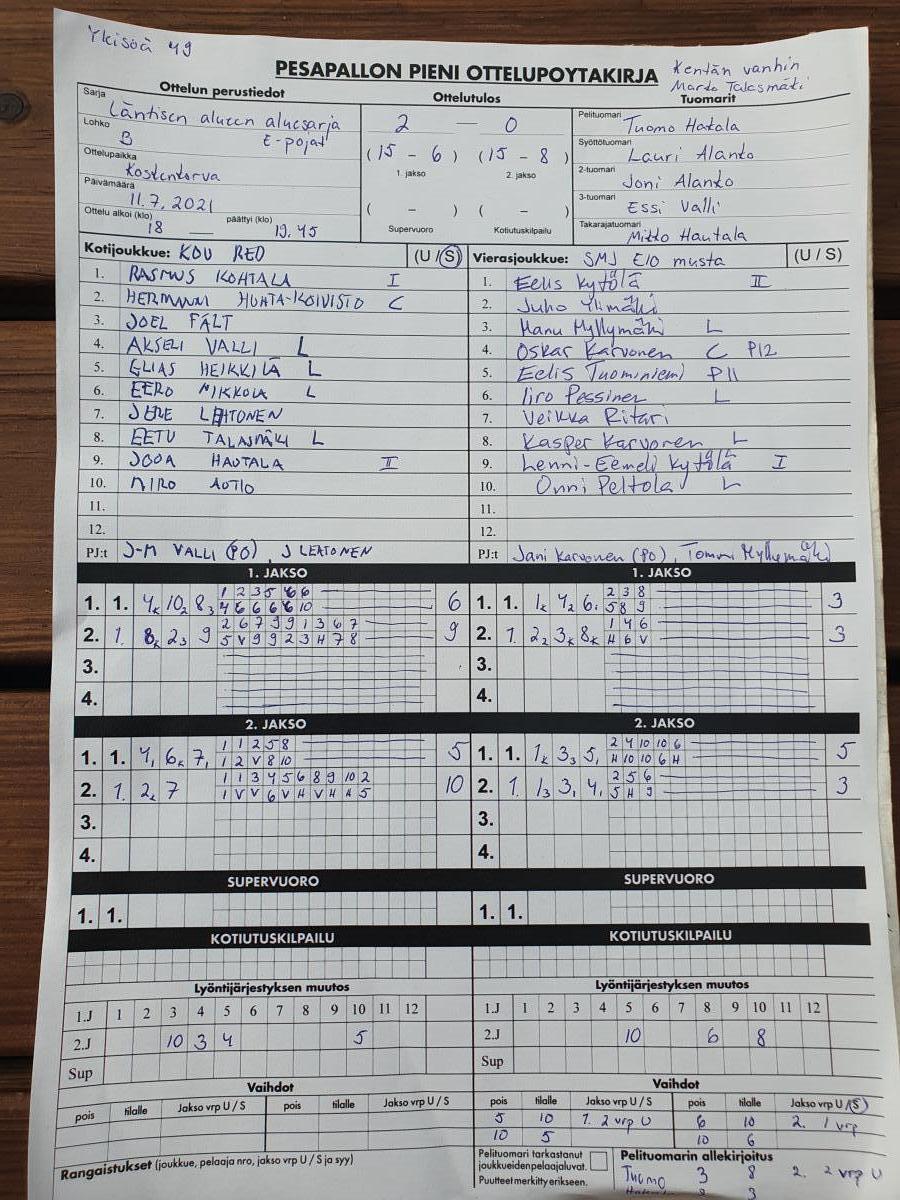 Yleisöä 49
PESÄPALLON PIENI OTTELUPÖYTÄKIRJA
Kentän vanhin
Marko Talasmäki
Ottelun perustiedot Ottelutulos Tuomarit
Sarja Läntisen alueen aluesarja
Lohko B E-pojat
Ottelupaikka Koskenkorva
Päivämäärä 11.7.2021
Ottelu alkoi (klo) 18 päättyi (klo) 19.45
2 — 0
(15 - 6) (15 - 8)
1. jakso 2. jakso
( - ) ( - )
Supervuoro Kotiutuskilpailu
Pelituomari Tuomo Hakala
Syöttötuomari Lauri Alanko
2-tuomari Joni Alanko
3-tuomari Essi Valli
Takarajatuomari Mikko Hautala
Kotijoukkue: KOU RED (U / S)
1. RASMUS KOHTALA I
2. HERMANNI HUHTA-KOIVISTO C
3. JOEL FÄLT
4. AKSELI VALLI L
5. ELIAS HEIKKILÄ L
6. EERO MIKKOLA L
7. JERE LEHTONEN
8. EETU TALASMÄKI L
9. JOOA HAUTALA II
10. NIRO AUTIO
11.
12.
PJ:t J-M VALLI (PO), J LEHTONEN
Vierasjoukkue: SMJ E10 musta (U / S)
1. Eelis Kytölä II
2. Juho Ylimäki
3. Manu Myllymäki L
4. Oskar Karvonen C P12
5. Eelis Tuominiemi P11
6. Iiro Pessinen L
7. Veikka Ritari
8. Kasper Karvonen L
9. Lenni-Eemeli Kytölä I
10. Onni Peltola L
11.
12.
PJ:t Jani Karvonen (PO), Tommi Myllymäki
1. JAKSO 1. JAKSO
1. 1. 4k 10 2 8 3 1 2 3 5 6 6 6
4 6 6 6 6 10
2. 1. 8k 2 3 9 2 6 7 9 9 1 3 6 7 9
5 V 9 9 2 3 H 7 8
3.
4.
1. 1. 1k 4 2 6 1 2 3 8 3
5 8 9
2. 1. 2 2 3k 8k 1 4 6 3
H 6 V
3.
4.
2. JAKSO 2. JAKSO
1. 1. 4 1 6k 7 1 1 1 2 5 8 5
1 2 V 8 10
2. 1. 2k 7 1 1 3 4 5 6 8 9 10 2 10
1 V V 6 V H V H H 5
3.
4.
1. 1. 1k 3 3 5 1 2 4 10 10 6 5
H 10 10 6 H
2. 1. 1 3 3 1 4 1 2 5 6 3
5 H 9
3.
4.
SUPERVUORO SUPERVUORO
1. 1. 1. 1.
KOTIUTUSKILPAILU KOTIUTUSKILPAILU
Lyöntijärjestyksen muutos Lyöntijärjestyksen muutos
1.J 1 2 3 4 5 6 7 8 9 10 11 12
2.J 10 3 4 5
Sup
1.J 1 2 3 4 5 6 7 8 9 10 11 12
2.J 10 6 8
Sup
Vaihdot Vaihdot
pois tilalle Jakso vrp U / S pois tilalle Jakso vrp U / S
pois tilalle Jakso vrp U / S pois tilalle Jakso vrp U / S
5 10 1. 2 vrp U 6 10 2. 1 vrp
10 5 10 6
Rangaistukset (joukkue, pelaaja nro, jakso vrp U / S ja syy)
Pelituomari tarkastanut
joukkueidenpelaajaluvat.
Puutteet merkitty erikseen.
Pelituomarin allekirjoitus
Tuomo 3 8 2. 2 vrp U
8 3